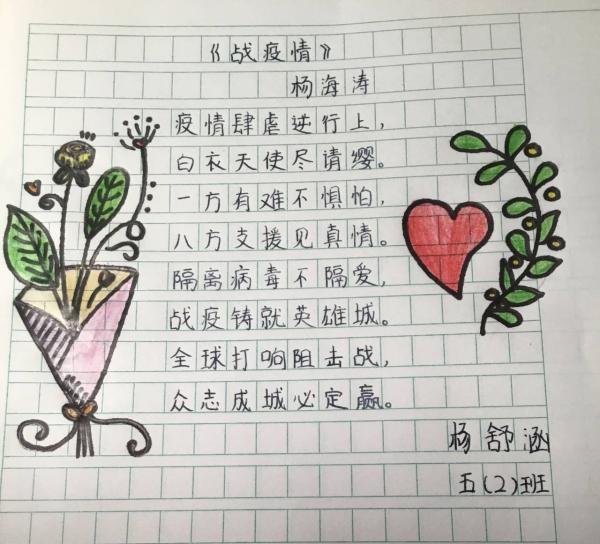 《战疫情》
杨海涛
疫情肆虐逆行上，
白衣天使尽请缨。
一方有难不惧怕，
八方支援见真情。
隔离病毒不隔爱，
战疫铸就英雄城。
全球打响阻击战，
众志成城必定赢。
杨舒涵
五(2)班